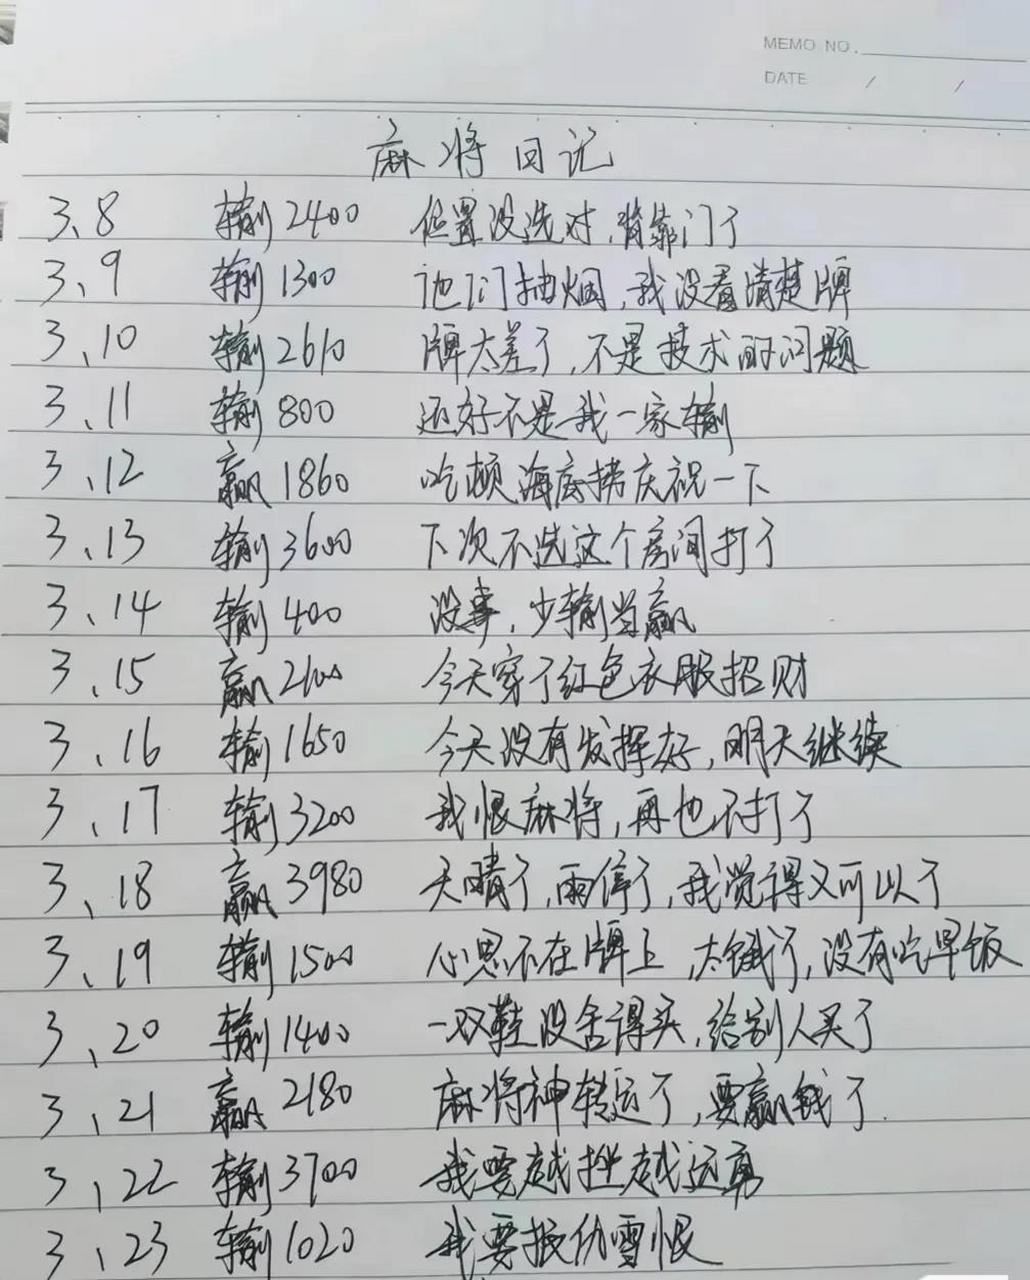 MEMO NO.
DATE / /
麻将日记
3、8 输2400 位置没选对,背靠门了
3、9 输1300 他们抽烟,我没看清楚牌
3、10 输2610 牌太差了,不是技术的问题
3、11 输800 还好不是我一家输
3、12 赢1860 吃顿海底捞庆祝一下
3、13 输3600 下次不选这个房间打了
3、14 输400 没事,少输当赢
3、15 赢2100 今天穿了红色衣服招财
3、16 输1650 今天没有发挥好,明天继续
3、17 输3200 我恨麻将,再也不打了
3、18 赢3980 天晴了,雨停了,我觉得又可以了
3、19 输1500 心思不在牌上,太饿了,没有吃早饭
3、20 输1400 一双鞋没舍得买,给别人买了
3、21 赢2180 麻将神转运了,要赢钱了.
3、22 输3700 我要越挫越勇
3、23 输1020 我要报仇雪恨